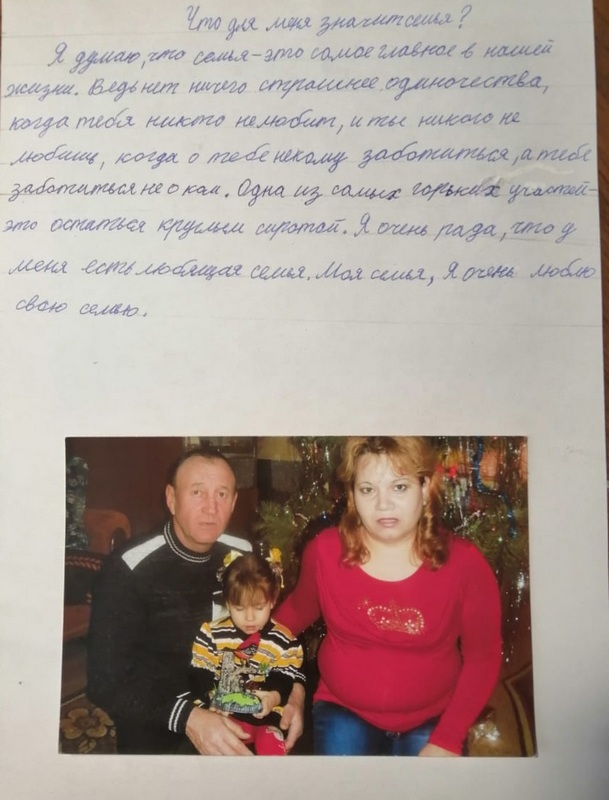 Что для меня значит семья?
Я думаю, что семья-это самое главное в нашей
жизни. Ведь нет ничего страшнее одиночества,
когда тебя никто не любит, и ты никого не
любишь, когда о тебе некому заботиться, а тебе
заботиться не о ком. Одна из самых горьких участей-
это остаться круглым сиротой. Я очень рада, что у
меня есть любящая семья. Моя семья, Я очень люблю
свою семью.